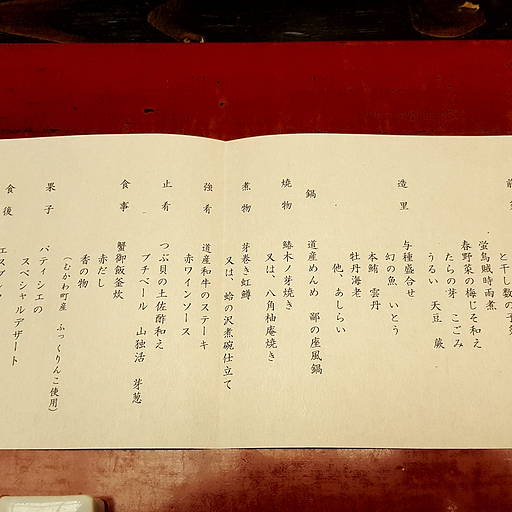 と干し数の子
螢烏賊時雨煮
春野菜の梅じそ和え
たらの芽　こごみ
うるい　天豆　蕨
造里
与種盛合せ
幻の魚　いとう
本鮪　雲丹
牡丹海老
他、あしらい
鍋
道産めんめ　鄙の座風鍋
焼物
鰆木ノ芽焼き
又は、八角柚庵焼き
煮物
芽巻き虹鱒
又は、蛤の沢煮碗仕立て
強肴
道産和牛のステーキ
赤ワインソース
止肴
つぶ貝の土佐酢和え
プチベール　山独活　芽葱
食事
蟹御飯釜炊
赤だし
香の物
(むかわ町産　ふっくりんこ使用)
果子
パティシエの
スペシャルデザート
食後
エスプレッ